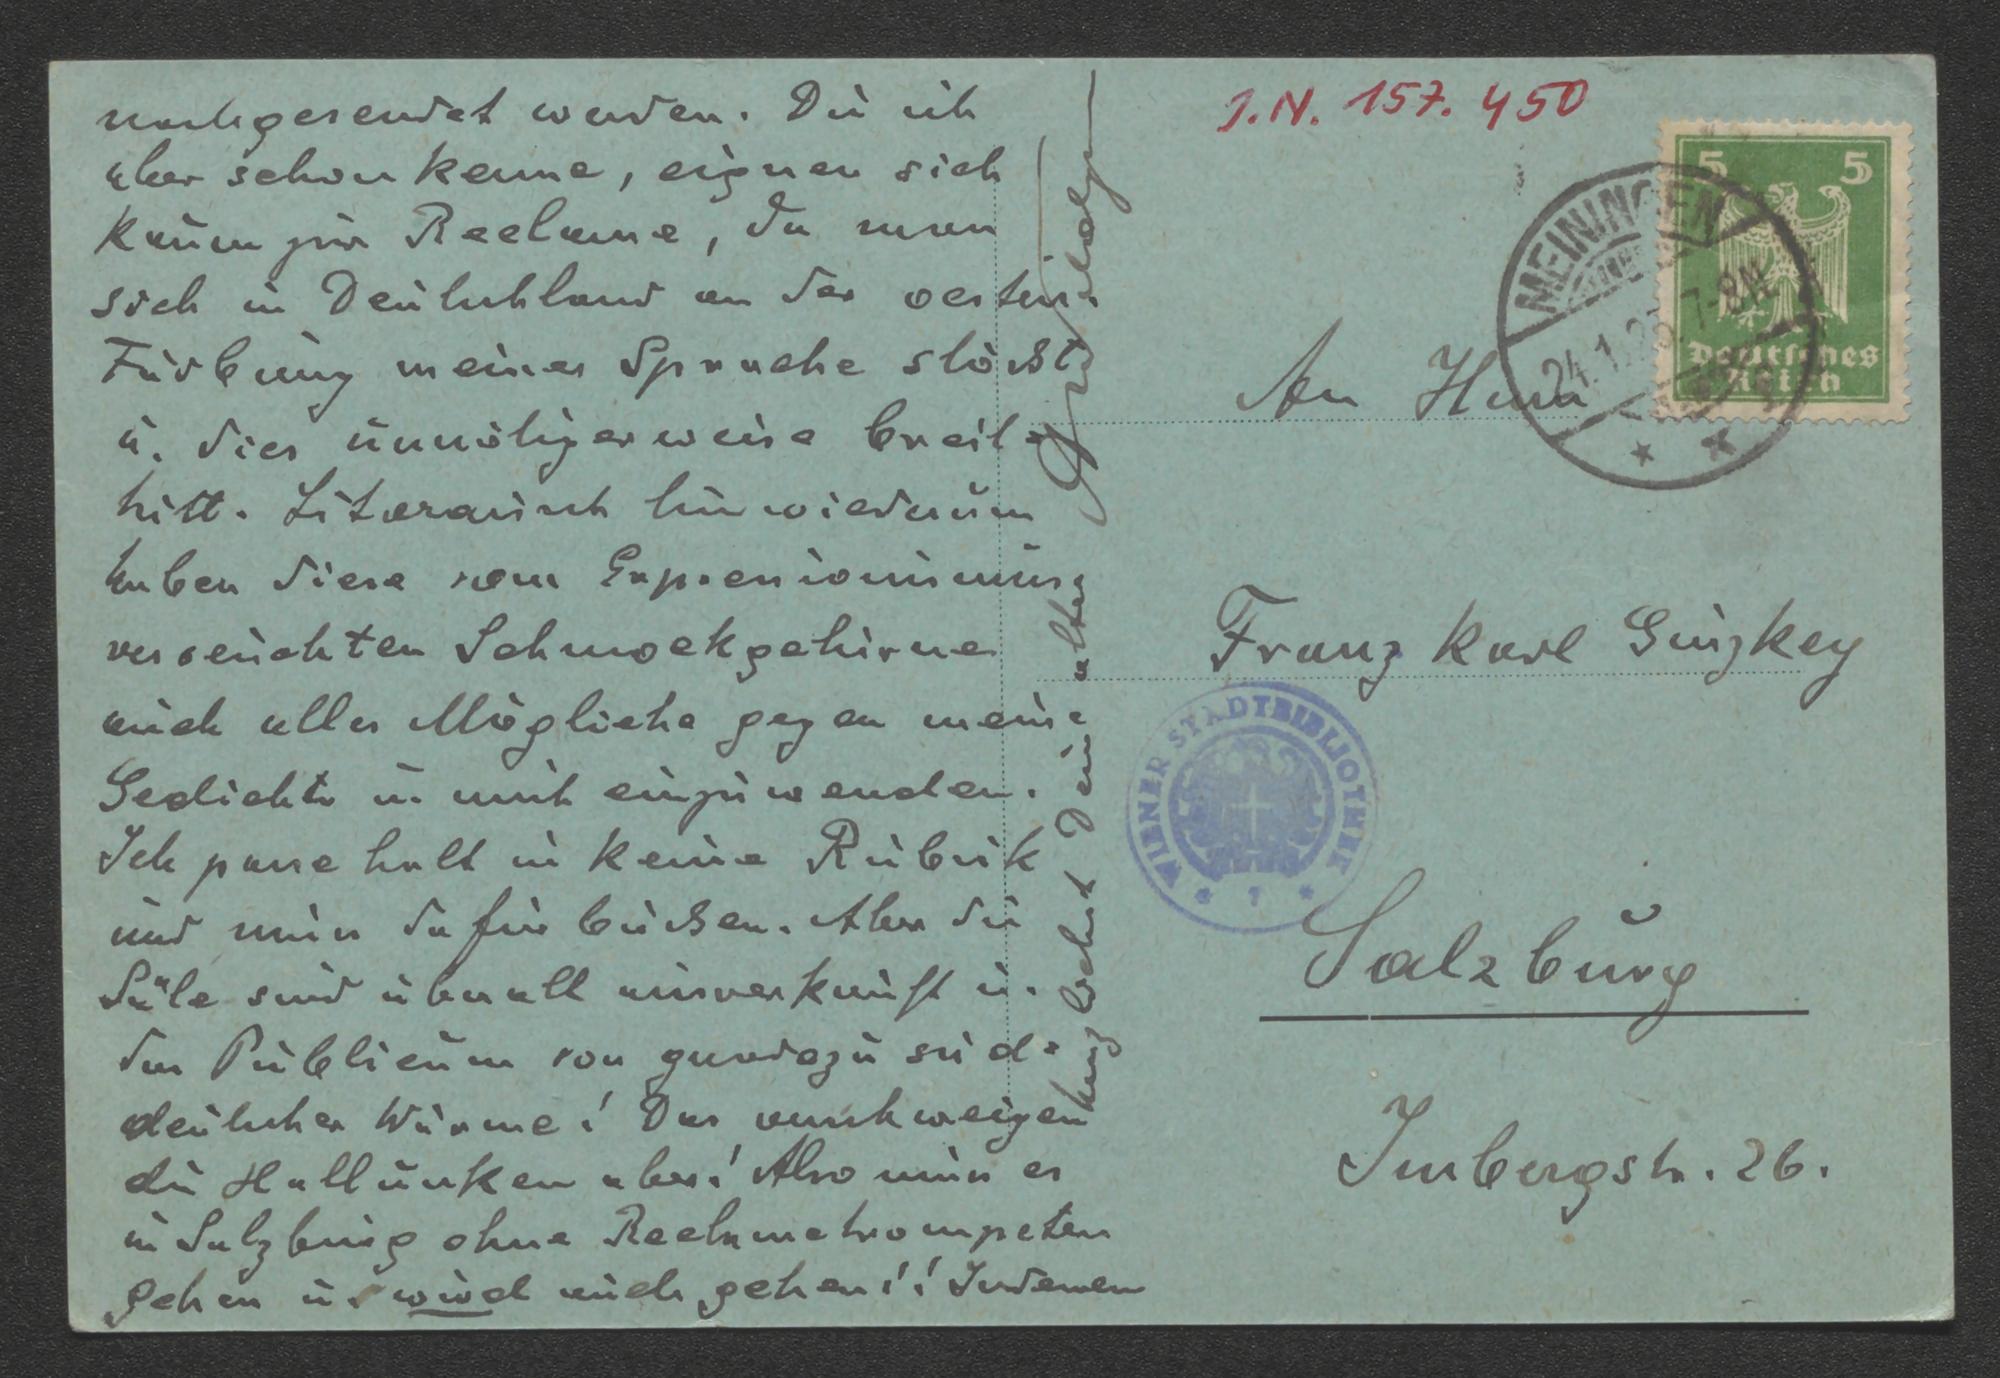 nachgesendet werden. Die ich
aber schon kenne, eignen sich
kaum zur Reclame, da man
sich in Deutschland an der oesterr.
Färbung meiner Sprache stösst
u. dies unnötigerweise breit-
tritt. Literarisch hinwiederum
haben diese vom Expressionismus
verseuchten Schmockgehirne
auch alles Mögliche gegen meine
Gedichte u. mich einzuwenden.
Ich passe halt in keine Rubrik
und muss dafür büssen. Aber die
Säle sind überall ausverkauft u.
das Publicum von geradezu süd-
deutscher Wärme! Das verschweigen
die Hallunken aber! Also muss es
in Salzburg ohne Reclametrompeten
gehen u. wird auch gehen!! Indessen
herzlichst Dein alter
J.N. 157.450
5 5
Deutsches
Reich
MEININGEN
24.1.25. 7-8N.
An Herrn
Franz Karl Ginzkey
WIENER STADTBIBLIOTHEK
* 1 *
Salzburg
Imbergstr. 26.